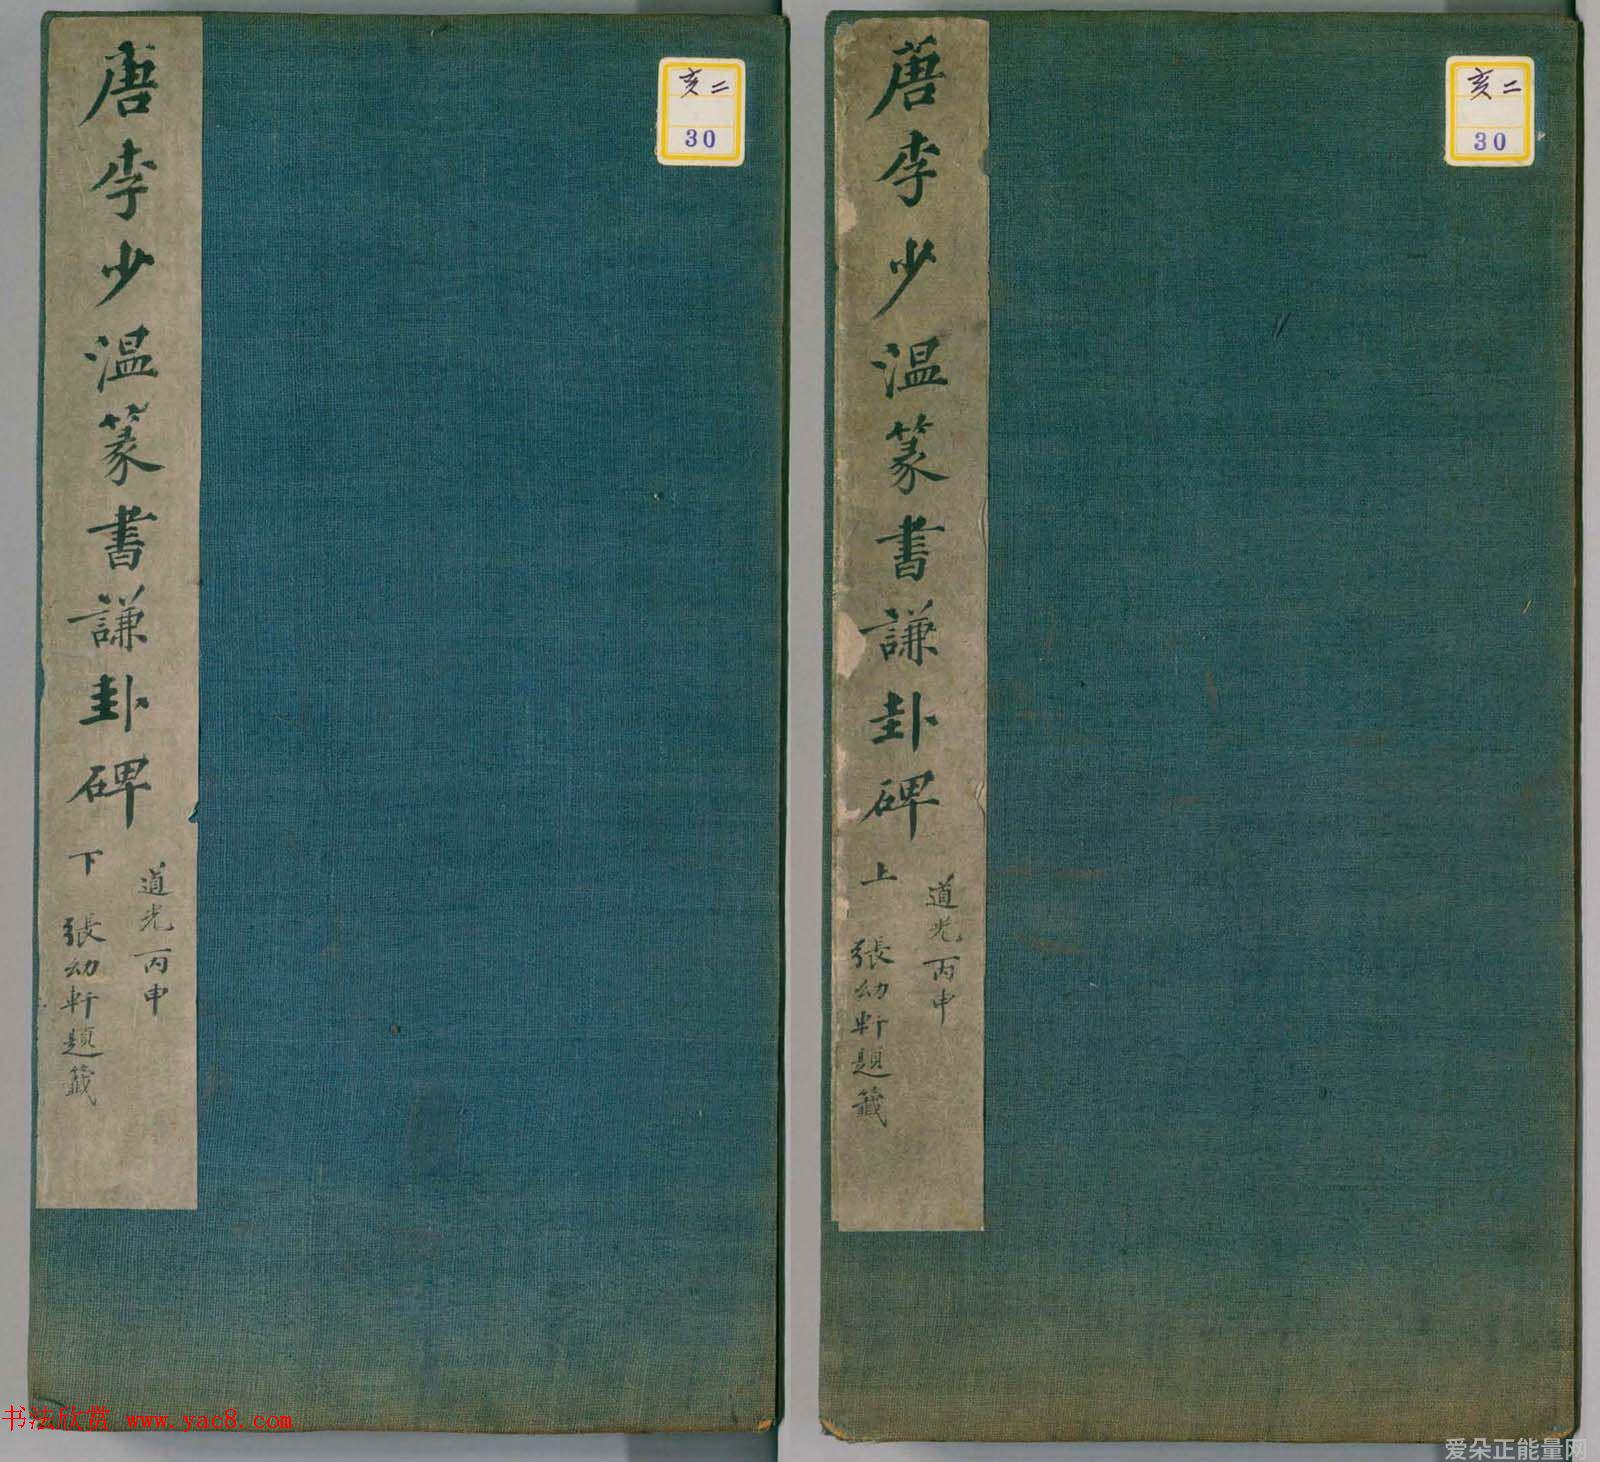 唐李少温篆書謙卦碑 下
道光丙申
張幼軒題籤
亥二
30
唐李少温篆書謙卦碑 上
道光丙申
張幼軒題籤
亥二
30
书法欣赏 www.yac8.com
爱朵正能量网